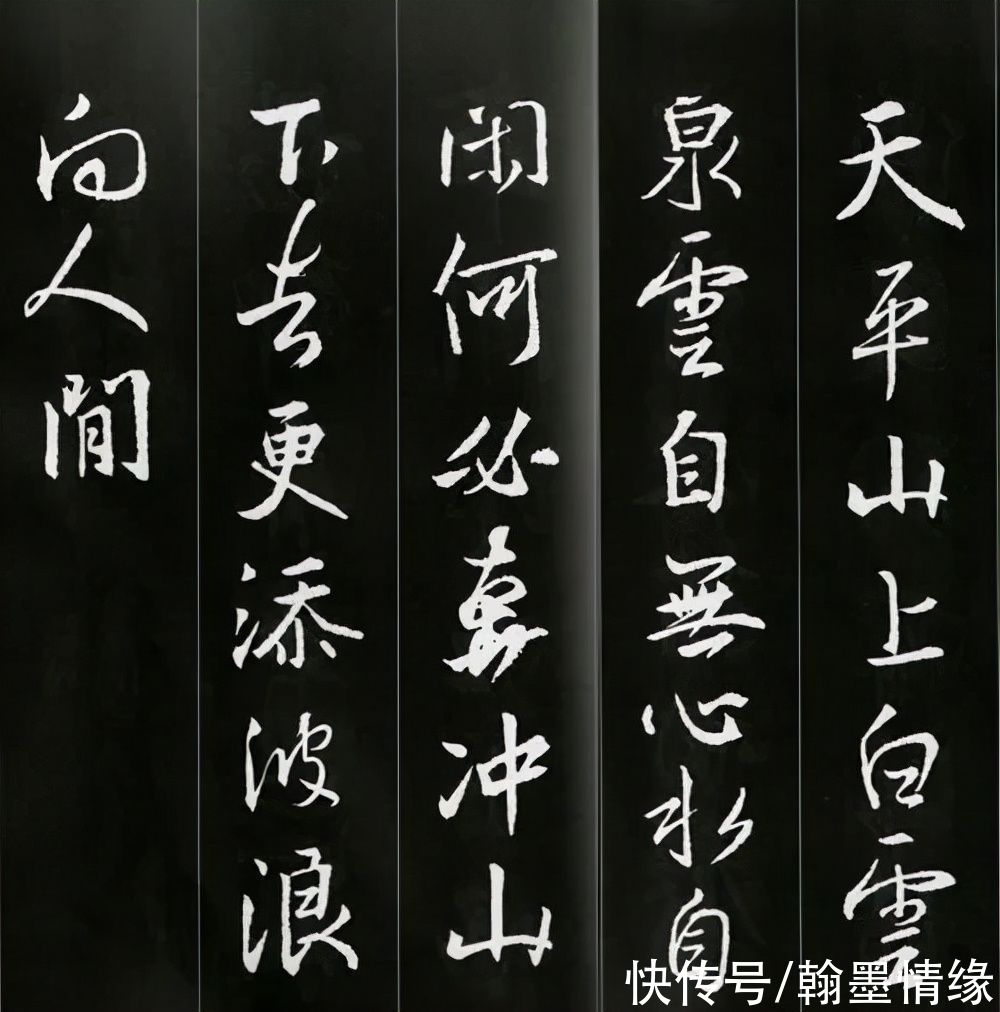 天平山上白雲
泉雲自無心水自
閑何必奔冲山
下去更添波浪
向人間
快传号/翰墨情缘